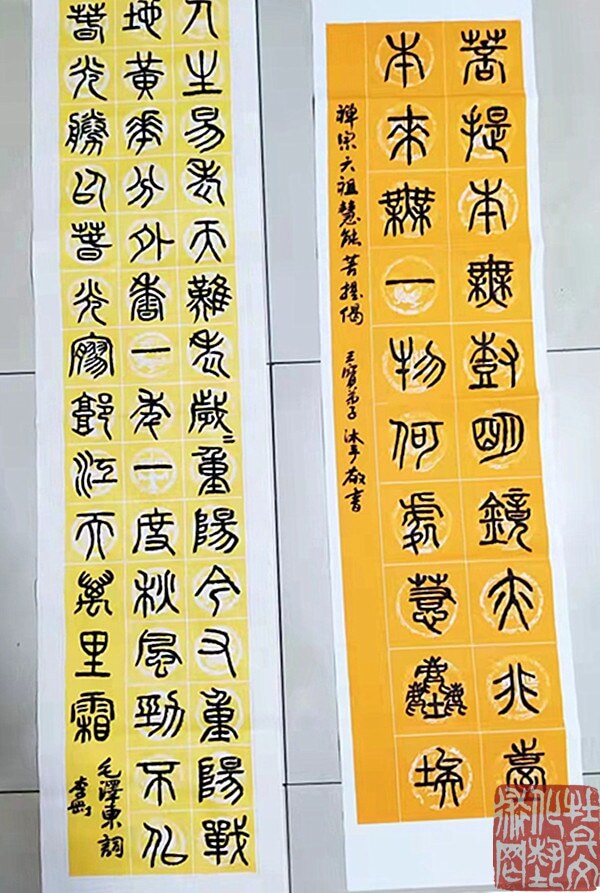 菩提本無樹明鏡亦非臺
本來無一物何處惹塵埃
禪宗六祖慧能菩提偈 弟子沐手敬書
人生易老天難老歲々重陽今又重陽戰
地黃花分外香一年一度秋風勁不似
春光勝似春光寥廓江天萬里霜
毛澤東詞
牡丹文
化藝
術网